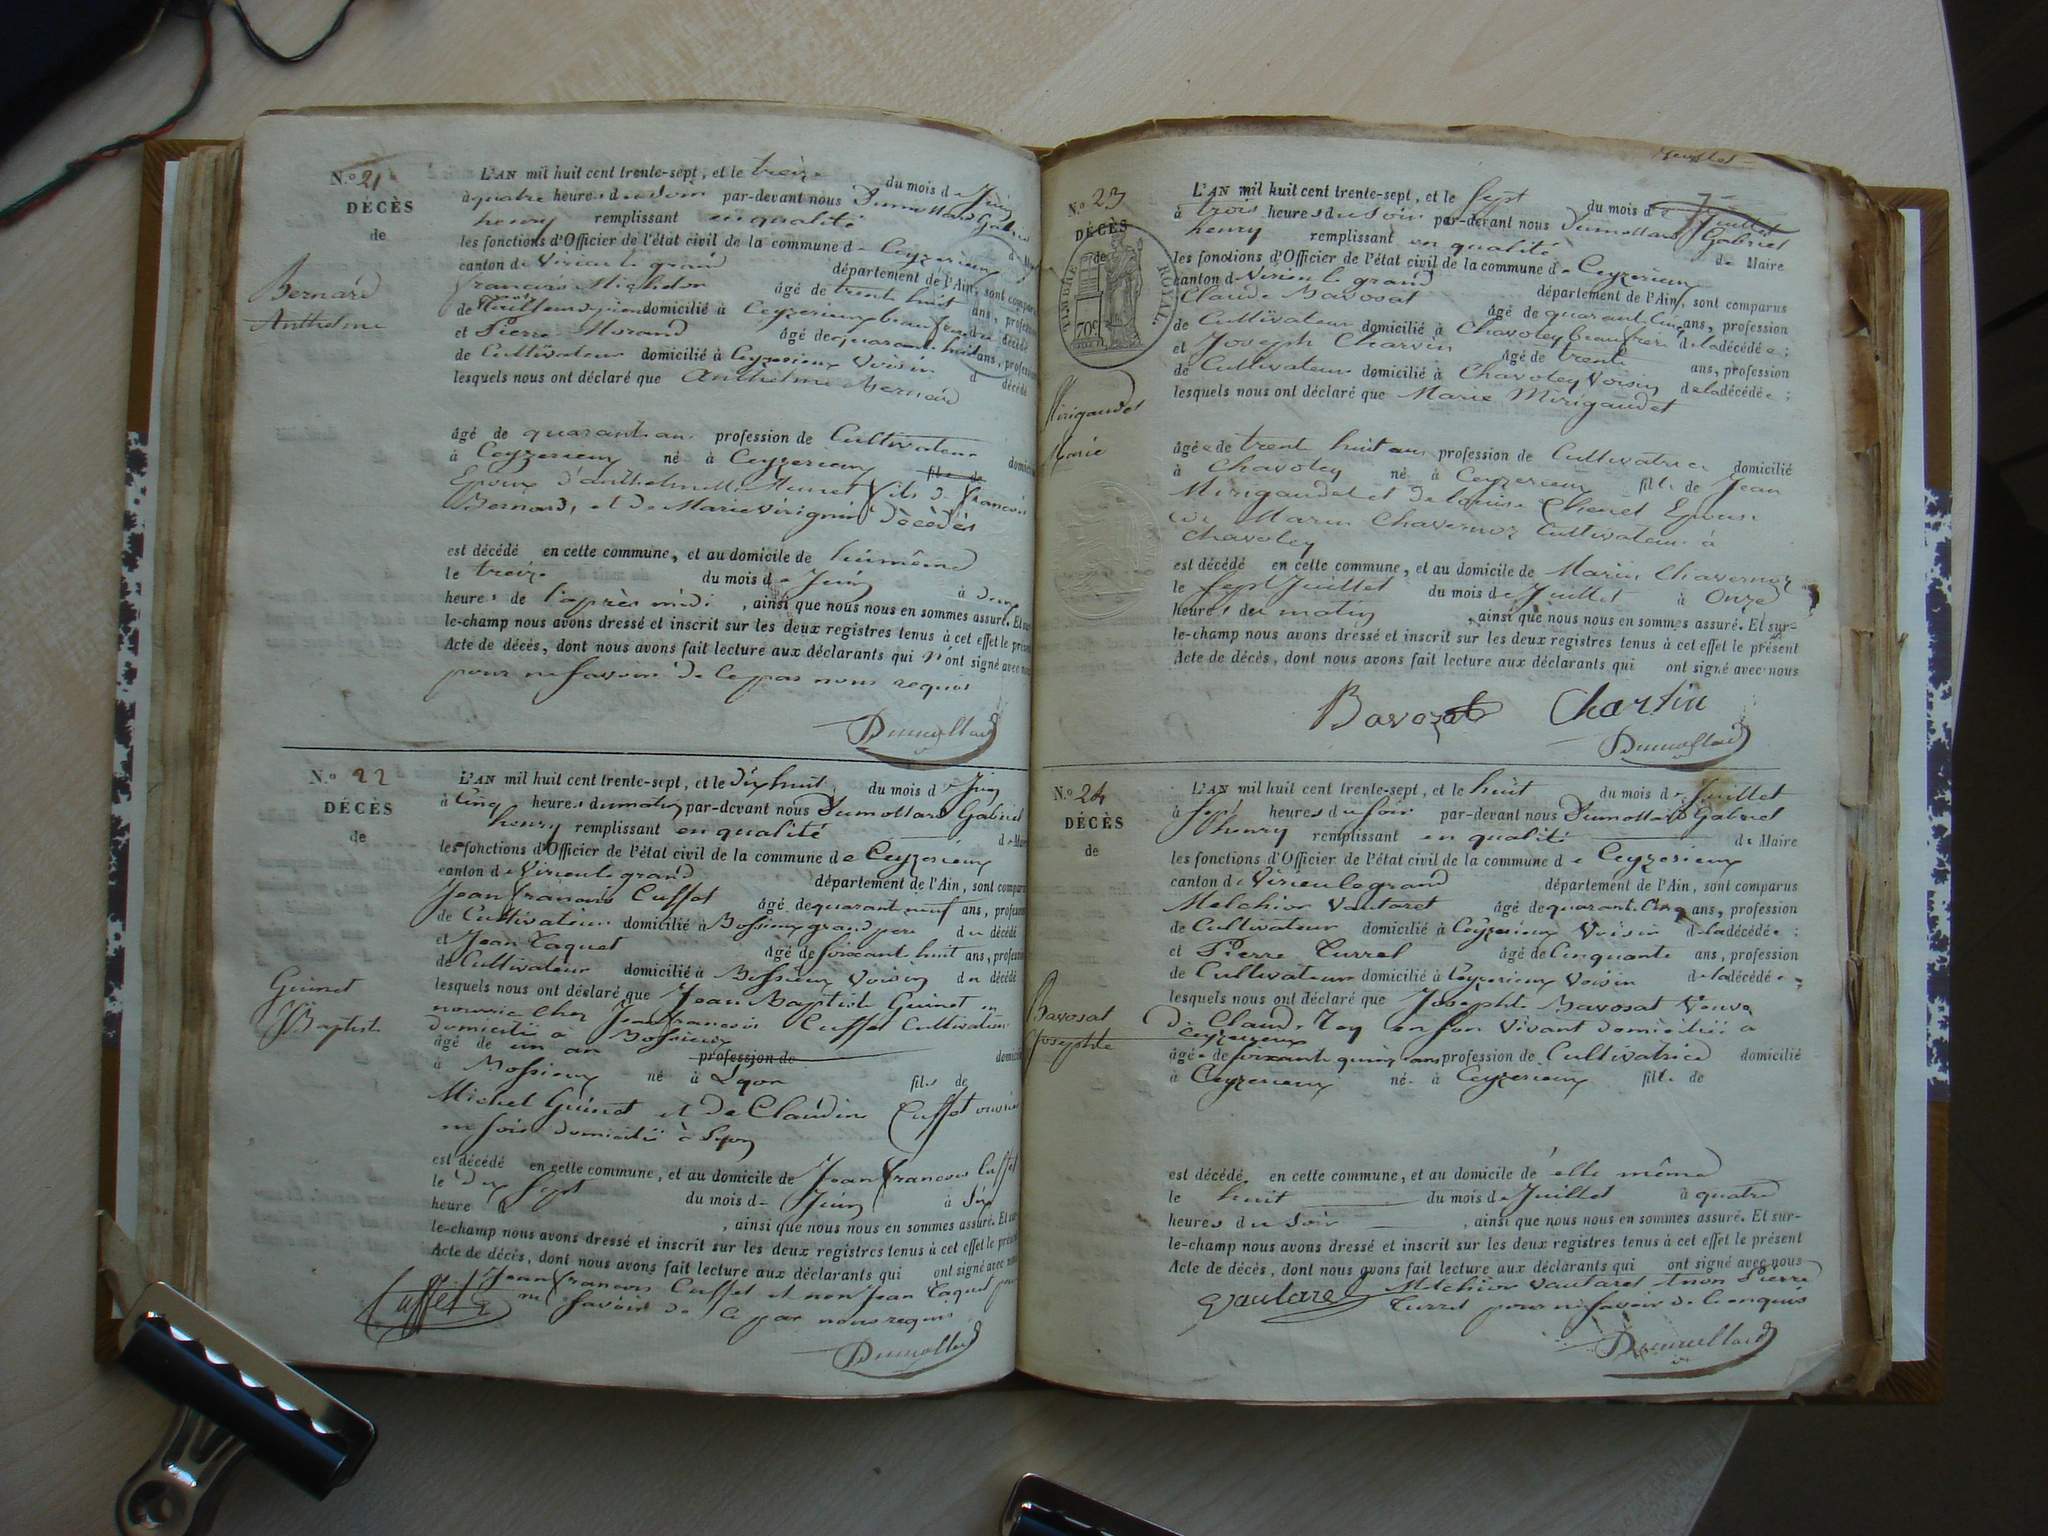 N.o 21
DÉCÈS
de
Bernard
Anthelme
L'AN mil huit cent trente-sept, et le treize du mois de Juin
à quatre heures du soir par-devant nous Dumollard Gabriel
henry remplissant en qualité de
les fonctions d'Officier de l'état civil de la commune de Ceyzerieux
canton de Virieu le grand département de l'Ain, sont comparus
françois Michelon âgé de trente huit ans, profession
de domicilié à Ceyzerieux beaufrere du décédé
et Pierre Morand âgé de quarante huit ans, profession
de Cultivateur domicilié à Ceyzerieux Voisin d décédé
lesquels nous ont déclaré que Anthelme Bernard
âgé de quarante ans profession de Cultivateur domicilié
à Ceyzerieux né à Ceyzerieux fils de
Epoux d'anthelmette Munet fils de francois
Bernard, et de Marie décédés
est décédé en cette commune, et au domicile de lui même
le treize du mois de Juin à deux
heures de l'après midi, ainsi que nous nous en sommes assuré. Et sur-
le-champ nous avons dressé et inscrit sur les deux registres tenus à cet effet le présent
Acte de décès, dont nous avons fait lecture aux déclarants qui n'ont signé avec nous
pour ne savoir de ce par nous requis
Dumollard
N.o 22
DÉCÈS
de
Guinet
J Baptiste
L'AN mil huit cent trente-sept, et le dix huit du mois de Juin
à Cinq heures du matin par-devant nous Dumollard Gabriel
henry remplissant en qualité de Maire
les fonctions d'Officier de l'état civil de la commune de Ceyzerieux
canton de Virieu le grand département de l'Ain, sont comparus
Jean francois Cuffet âgé de quarante neuf ans, profession
de Cultivateur domicilié à Bossieux grand pere du décédé
et Jean Taquet âgé de soixante huit ans, profession
de Cultivateur domicilié à Bossieux Voisin du décédé
lesquels nous ont déclaré que Jean Baptiste Guinet en
nourrice chez Jean francois Cuffet Cultivateur
domicilié à Bossieux
âgé de un an profession de domicilié
à Bossieux né à Lyon fils de
Michel Guinet et de Claudine Cuffet ouvriers
en soie domicilié à Lyon
est décédé en cette commune, et au domicile de Jean francois Cuffet
le dix sept du mois de Juin à Six
heure , ainsi que nous nous en sommes assuré. Et sur-
le-champ nous avons dressé et inscrit sur les deux registres tenus à cet effet le présent
Acte de décès, dont nous avons fait lecture aux déclarants qui ont signé avec nous
Jean francois Cuffet et non Jean Taquet pour
ne savoir de ce par nous requis
Cuffet
Dumollard
Feuillet
7
N.o 23
DÉCÈS
de
TIMBRE ROYAL
70c
Mirigaudet
Marie
L'AN mil huit cent trente-sept, et le Sept du mois de Juillet
à trois heures du soir par-devant nous Dumollard Gabriel
henry remplissant en qualité de Maire
les fonctions d'Officier de l'état civil de la commune de Ceyzerieux
canton de Virieu le grand département de l'Ain, sont comparus
Claude Bavosat âgé de quarante Cinq ans, profession
de Cultivateur domicilié à Chavoley beaufrere de la décédée ;
et Joseph Charvin âgé de trente ans, profession
de Cultivateur domicilié à Chavoley Voisin de la décédée ;
lesquels nous ont déclaré que Marie Mirigaudet
âgée de trente huit ans profession de Cultivatrice domicilié
à Chavoley né à Ceyzerieux fille de Jean
Mirigaudet et de Louise Chenet Epouse
de Marin Chavernoz Cultivateur à
Chavoley
est décédé en cette commune, et au domicile de Marin Chavernoz
le Sept Juillet du mois de Juillet à Onze
heures du matin , ainsi que nous nous en sommes assuré. Et sur-
le-champ nous avons dressé et inscrit sur les deux registres tenus à cet effet le présent
Acte de décès, dont nous avons fait lecture aux déclarants qui ont signé avec nous
Bavozat Charvin
Dumollard
N.o 24
DÉCÈS
de
Bavosat
Josephte
L'AN mil huit cent trente-sept, et le huit du mois de Juillet
à sept heures du soir par-devant nous Dumollard Gabriel
henry remplissant en qualité de Maire
les fonctions d'Officier de l'état civil de la commune de Ceyzerieux
canton de Virieu le grand département de l'Ain, sont comparus
Melchior Vautaret âgé de quarante Cinq ans, profession
de Cultivateur domicilié à Ceyzerieux Voisin de la décédée ;
et Pierre Curret âgé de Cinquante ans, profession
de Cultivateur domicilié à Ceyzerieux Voisin de la décédée ;
lesquels nous ont déclaré que Josephte Bavosat Veuve
de Claude Roy en son vivant domicilié à
Ceyzerieux
âgée de soixante quinze ans profession de Cultivatrice domicilié
à Ceyzerieux né à Ceyzerieux fille de
est décédé en cette commune, et au domicile de elle même
le huit du mois de Juillet à quatre
heures du soir , ainsi que nous nous en sommes assuré. Et sur-
le-champ nous avons dressé et inscrit sur les deux registres tenus à cet effet le présent
Acte de décès, dont nous avons fait lecture aux déclarants qui ont signé avec nous
Vautaret Melchior Vautaret et non Pierre
Curret pour ne savoir de ce enquis
Dumollard